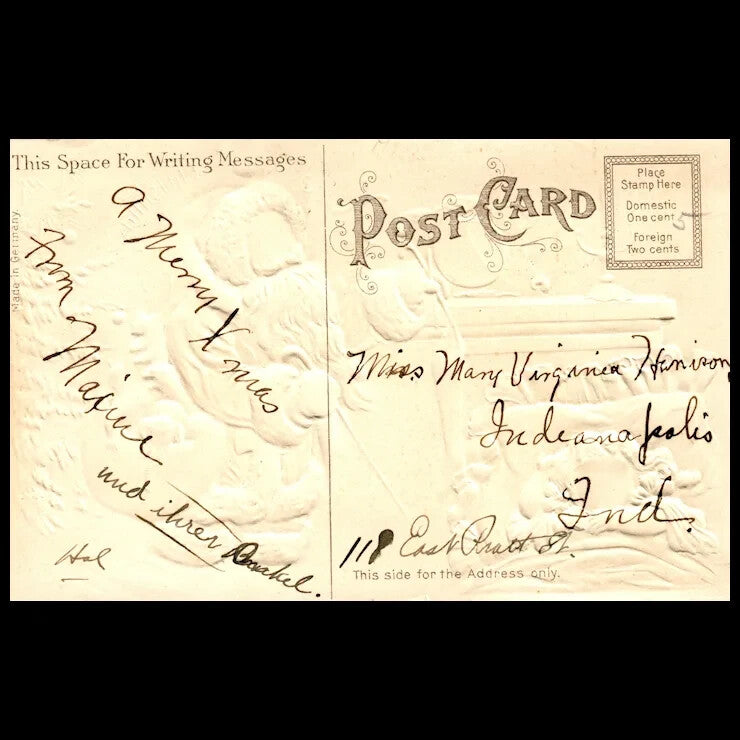 This Space For Writing Messages
Made in Germany.
A Merry Xmas
from Maxine
und ihren Onkel.
Hal
POST CARD
Place
Stamp Here
Domestic
One cent
Foreign
Two cents
5
Miss Mary Virginia Harrison
Indeanapolis
Ind.
118 East Pratt St.
This side for the Address only.